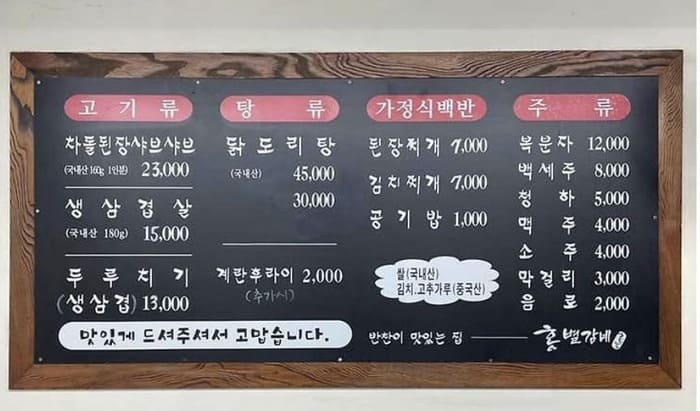 고기류
차돌된장샤브샤브
(국내산160g 1인분) 23,000
생삼겹살
(국내산 180g) 15,000
두루치기
(생삼겹) 13,000
탕류
닭도리탕
(국내산) 45,000
30,000
계란후라이 2,000
(추가시)
가정식백반
된장찌개 7,000
김치찌개 7,000
공기밥 1,000
쌀(국내산)
김치.고추가루(중국산)
주류
복분자 12,000
백세주 8,000
청하 5,000
맥주 4,000
소주 4,000
막걸리 3,000
음료 2,000
맛있게 드셔주셔서 고맙습니다.
반찬이 맛있는 집 홍별감네